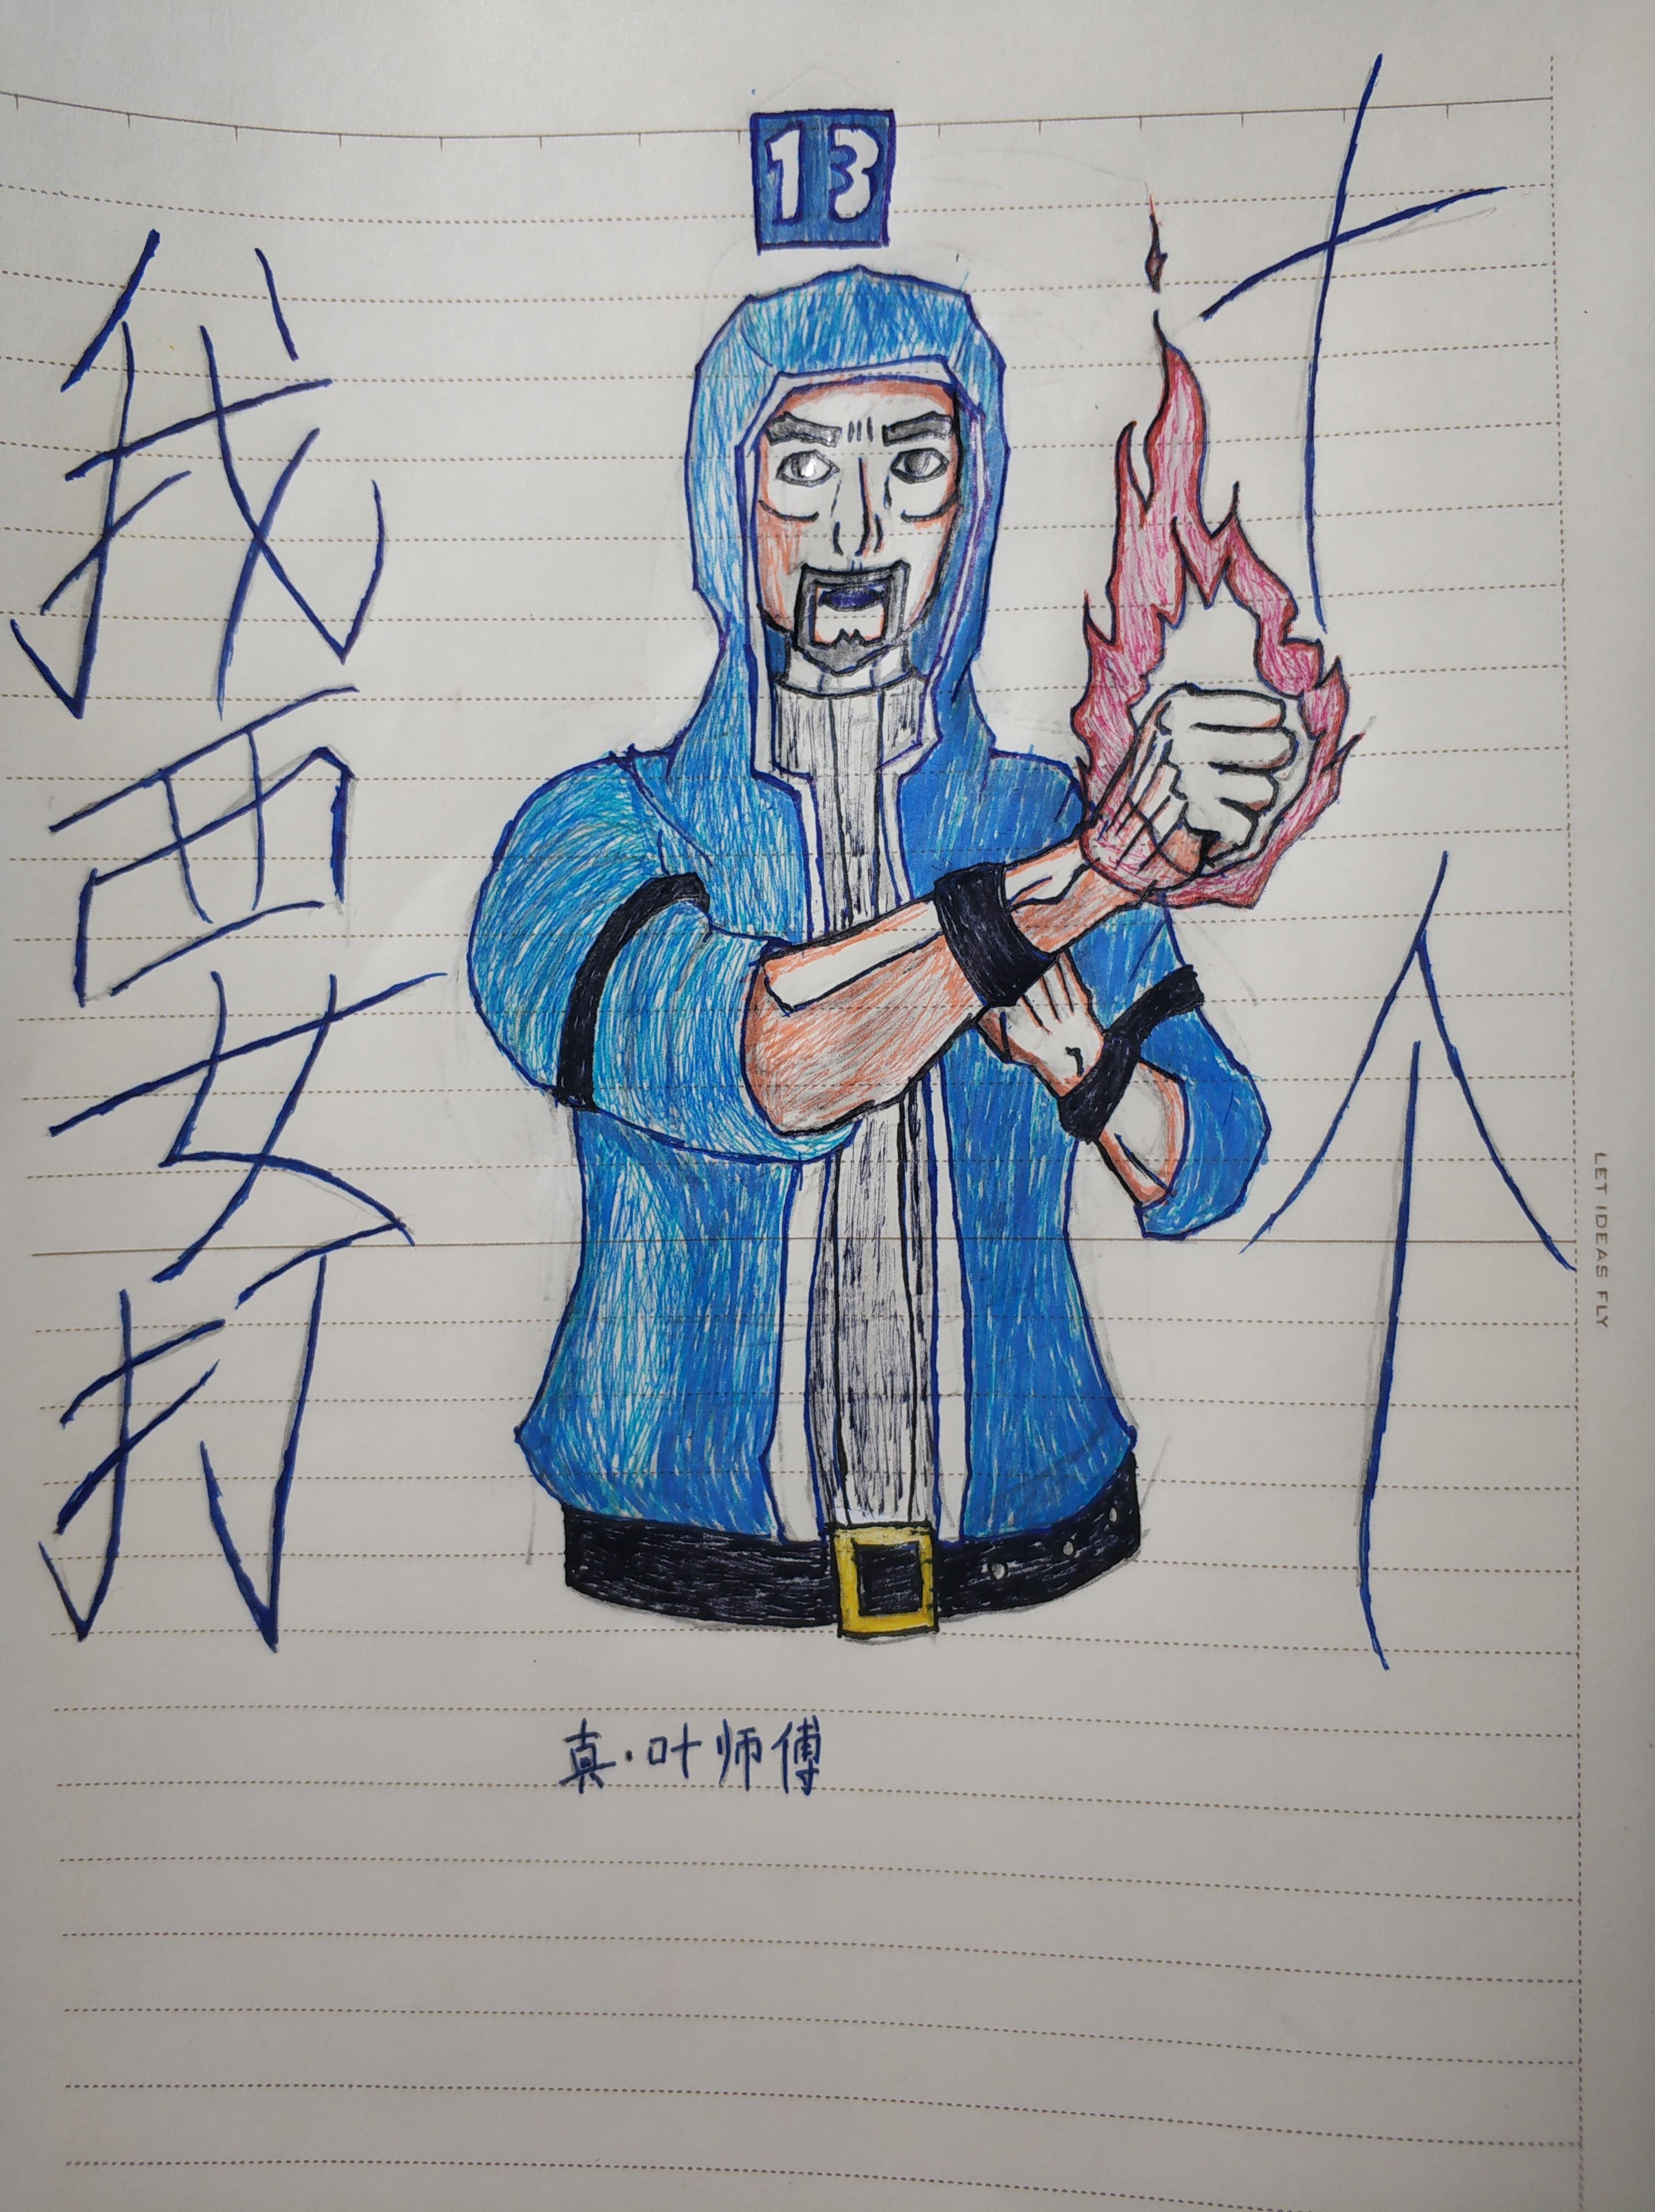 13
我要打
十个
真·叶师傅
LET IDEAS FLY